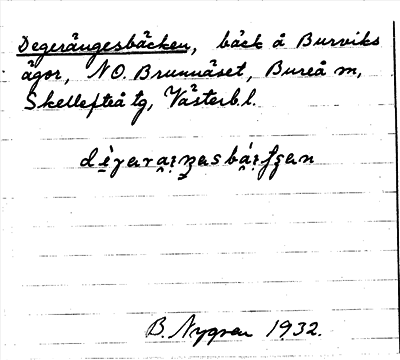 Degerängesbäcken, bäck å Burviks
ägor, NO. Brunnäset, Bureå sn,
Skellefteå tg, Västerb. l.
B. Nygren 1932.